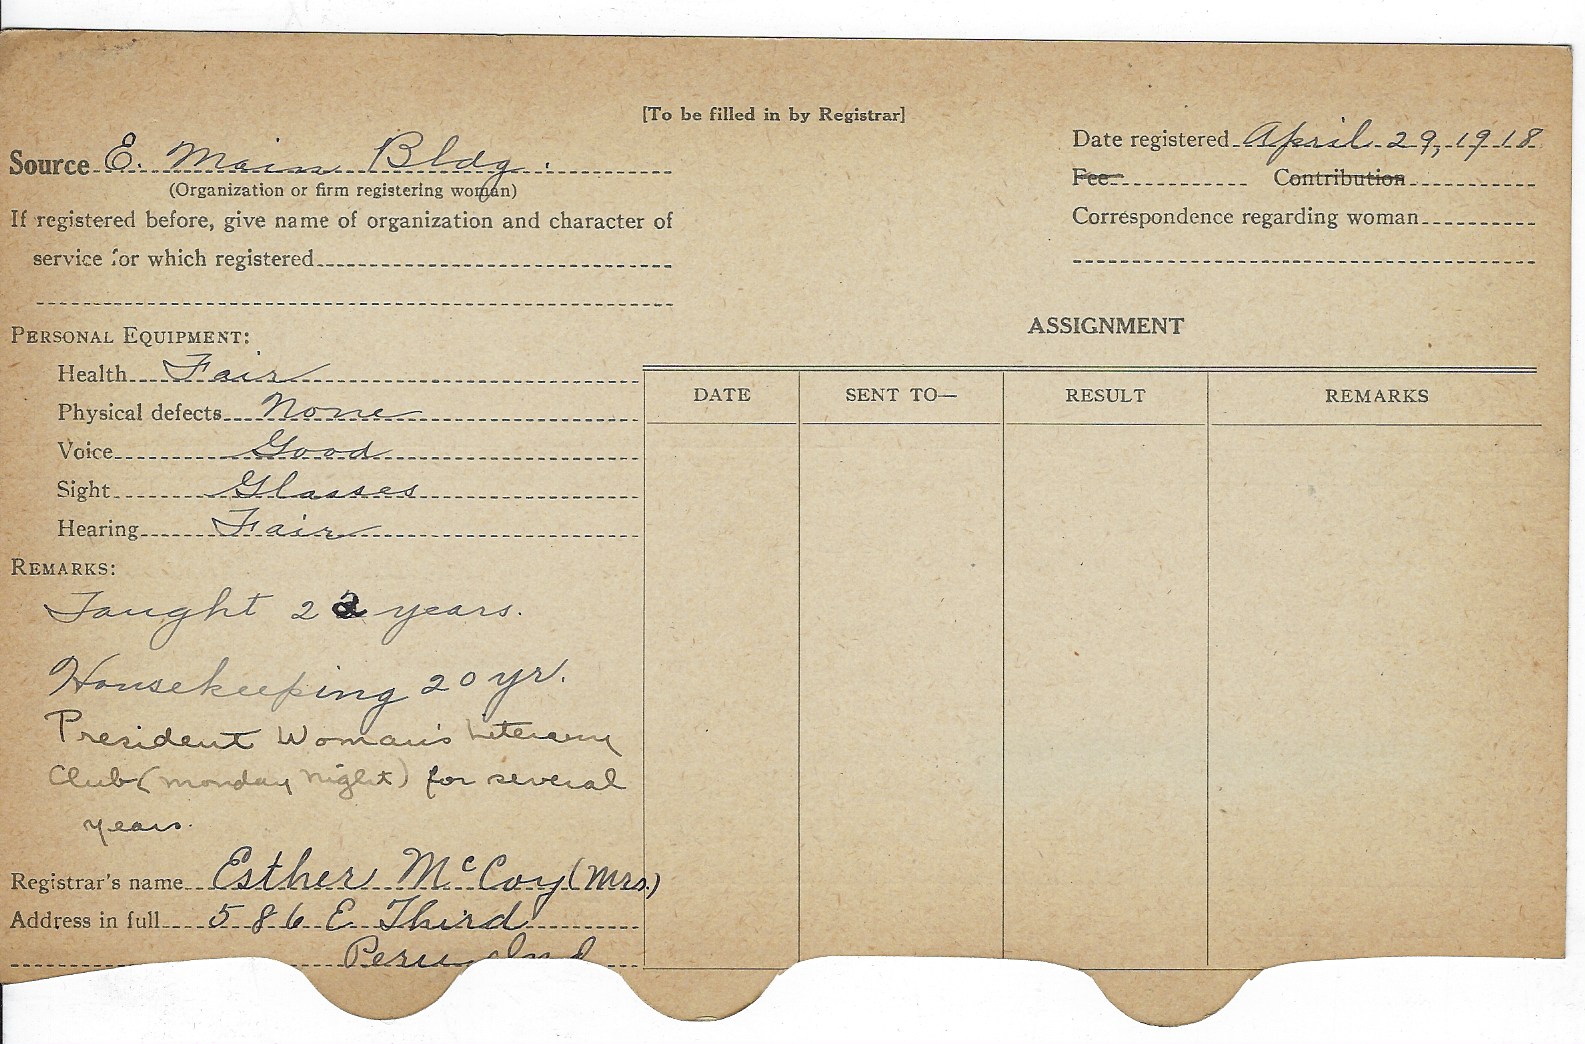 [To be filled in by Registrar]
Source E. Main Bldg.
(Organization or firm registering woman)
If registered before, give name of organization and character of
service for which registered
Date registered April 29, 1918
Fee Contribution
Correspondence regarding woman
PERSONAL EQUIPMENT:
Health Fair
Physical defects None
Voice Good
Sight Glasses
Hearing Fair
REMARKS:
Taught 22 years.
Housekeeping 20 yr.
President Woman's Literary
Club (Monday Night) for several
years.
Registrar's name Esther McCoy (Mrs.)
Address in full 586 E. Third
Peru Ind
ASSIGNMENT
DATE SENT TO— RESULT REMARKS